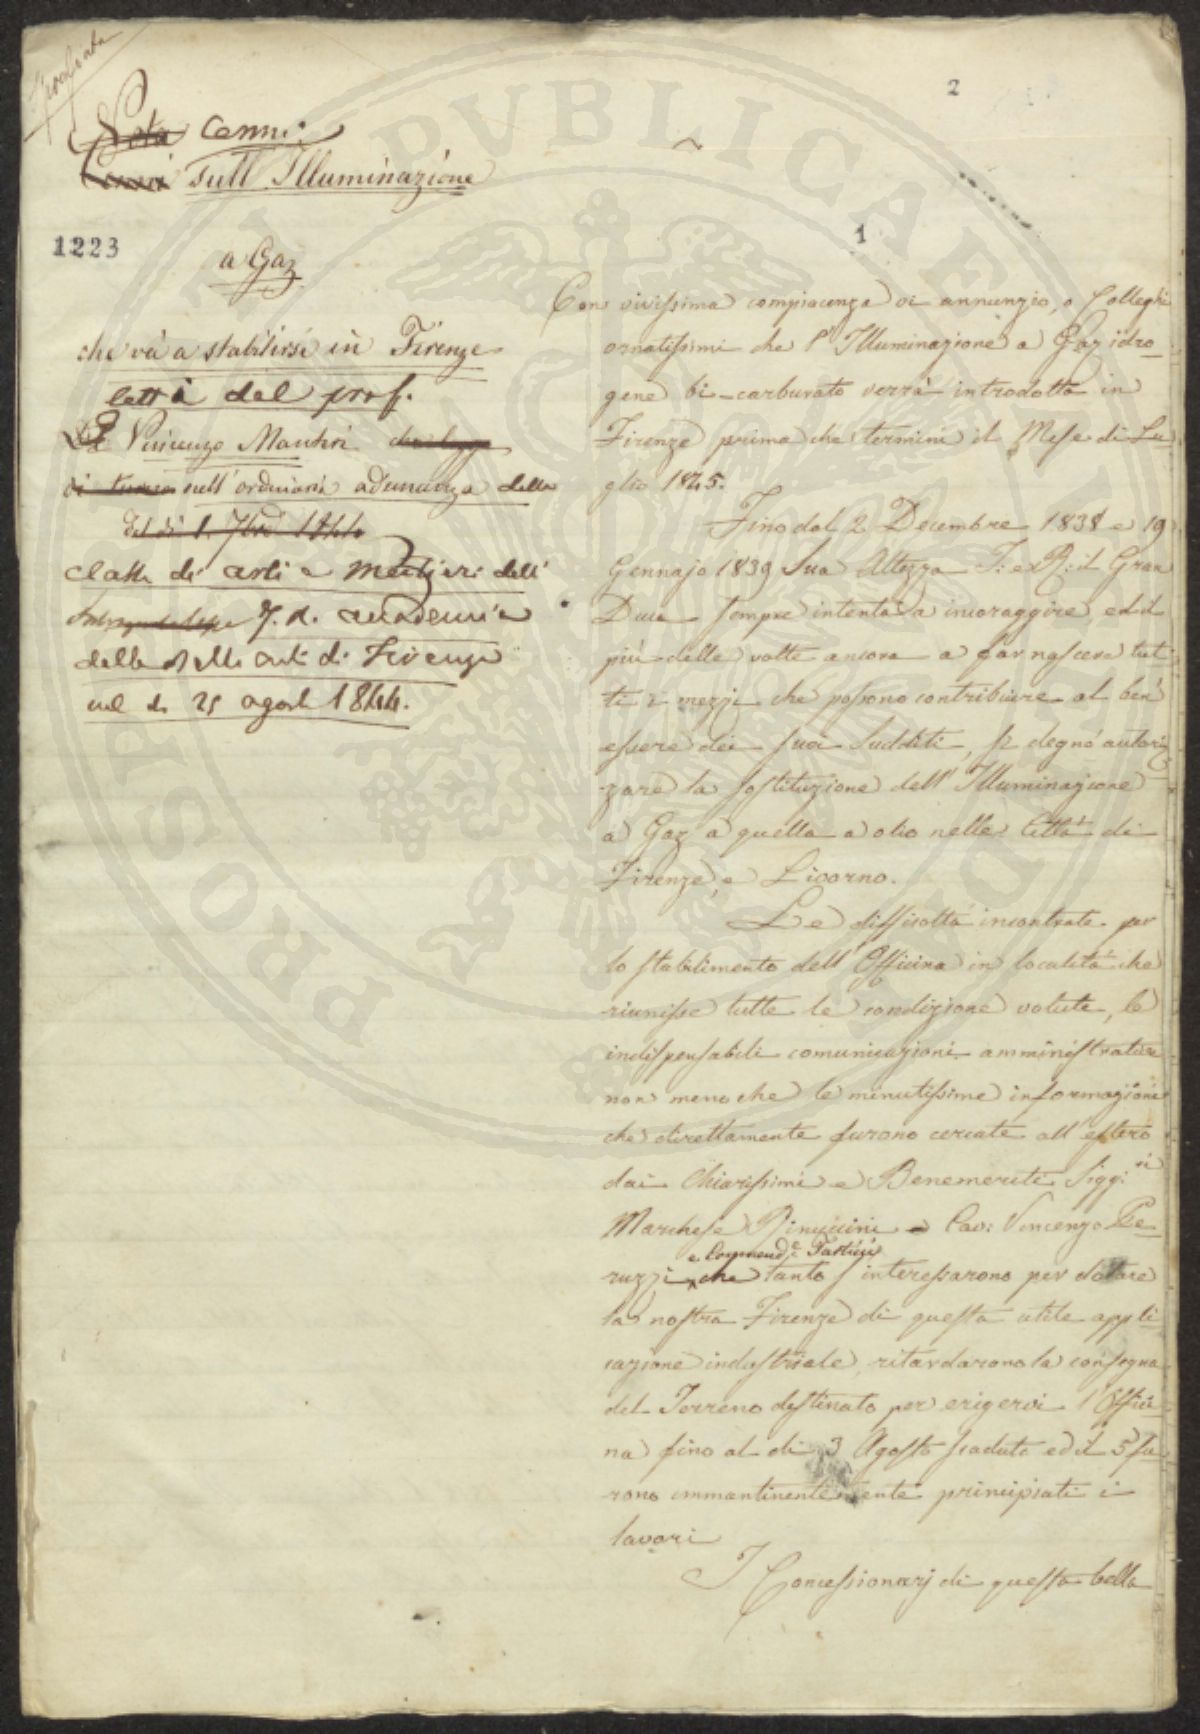 2
Nota Cenni
Cenni sull'Illuminazione
1223
a Gaz
1
che và a stabilirsi in Firenze
letti dal prof.
De Vincenzo Manteri
sull'ordinaria adunanza della
del dì 1. 7bre 1844
classe di arti e mestieri dell'
I. R. accademia
delle Belle arti di Firenze
nel dì 25 agost 1844.
Con vivissima compiacenza vi annunzio, o Colleghi
ornatissimi che l'Illuminazione a Gaz idro-
gene bi-carburato verrà introdotta in
Firenze prima che termini il Mese di Lu-
glio 1845.
Fino dal 2 Decembre 1838 e 19
Gennajo 1839 Sua Altezza I: e R: il Gran
Duca sempre intento a incoraggire, ed il
più delle volte ancora a far nascere tut-
ti i mezzi che possono contribuire al ben
essere dei suoi Sudditi, si degnò autoriz-
zare la sostituzione dell'Illuminazione
a Gaz a quella a olio nelle Città di
Firenze, e Livorno.
Le difficoltà incontrate per
lo stabilimento dell'Officina in località che
riunisse tutte le condizione volute, le
indispensabili comunicazioni amministrative
non meno che le minutissime informazione
che direttamente furono cercate all'estero
dai Chiarissimi e Benemeriti Sigg:ri
Marchese Rinuccini e Cav: Vincenzo Pe-
e Commend:e Tartini
ruzzi che tanto s'interessarono per dotare
la nostra Firenze di questa utile appli-
cazione industriale, ritardarono la consegna
del Terreno destinato per erigervi l'Offici-
na fino al dì 3 Agosto scaduto ed il 5 fu-
rono immantinentemente principiati i
lavori
I Concessionarj di questa bella